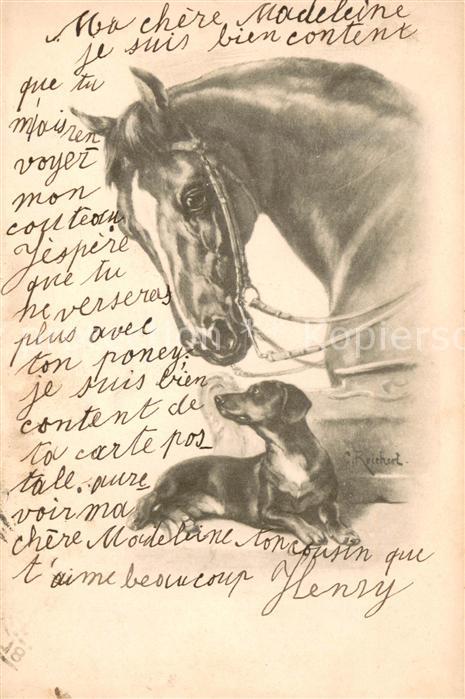 Ma chère Madeleine
je suis bien content
que tu
m'ais ren
voyer
mon
couteau
J'espère
que tu
ne verseras
plus avec
ton poney.
je suis bien
content de
ta carte pos_
tale. aure
voir ma
chère Madeleine ton cousin que
t'aime beaucoup Henry
C. Reichert.